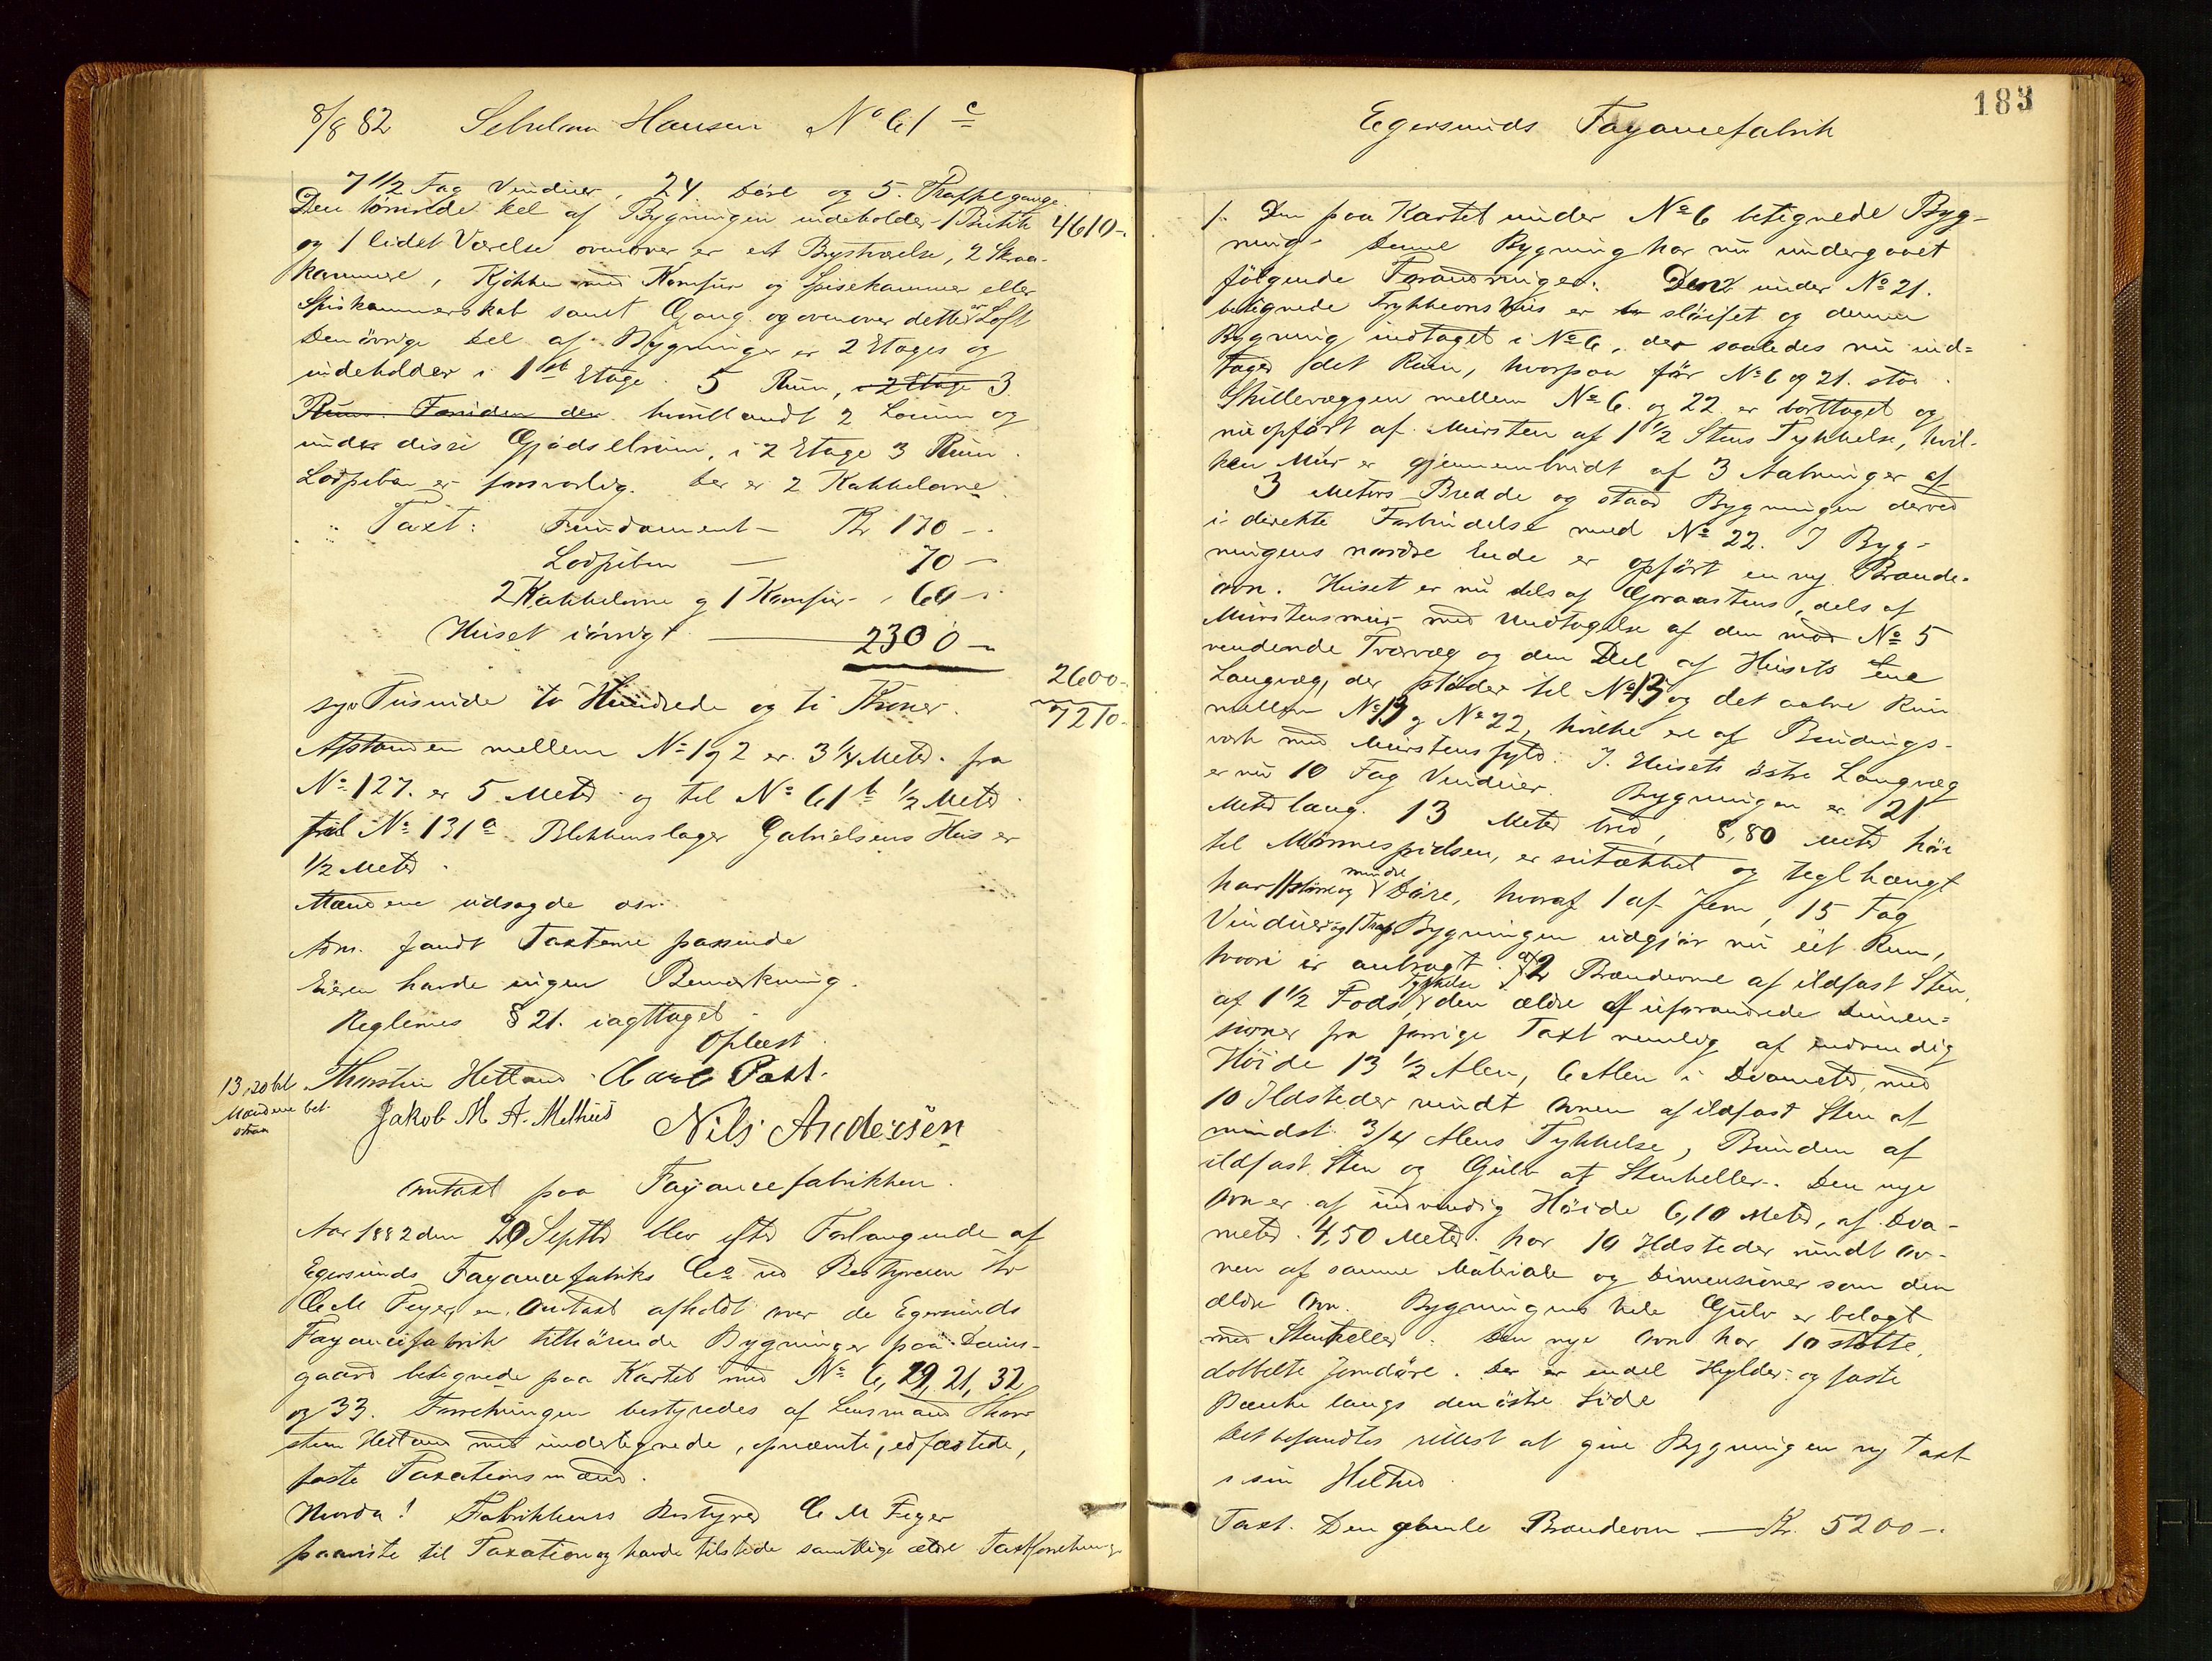 8/8 82 Hansen No 61 c
7 1/2 Fag Vinduer, 24 Döre og 5 Trappegange.
Den tömrede Del af Bygningen indeholder 1 Butik 4610-.
og 1 lidet Værelse ovenover er et Brystværelse, 2 Skraa-
kammere, Kjökken med Komfur og Spisekammer eller
Spiskammerskab samt Gang og ovenover dette er Loft
Den övrige Del af Bygningen er 2 Etages og
indeholder i 1ste Etage 5 Rum, i 2 Etage 3
Rum. Foruden den hvorblandt 2 Locum og
under disse Gjödselrum, i 2 Etage 3 Rum.
Lodpiben er forsvarlig. Der er 2 Kakkelovne.
Taxt: Fundament - Kr 170 -.
Lodpiben — 70 -
2 Kakkelovne og 1 Komfur - 60 -
Huset iövrigt — 2300 -
2600-
syv Tusinde to Hundrede og ti Kroner. 7210-
Afstanden mellem No 1 og 2 er 3 1/4 Meter. fra
No 127. er 5 Meter og til No 61 b 1/2 Meter
til No 131 a Blikkenslager Gabrielsens Hus er
1/2 Meter.
Mændene udsagde osv.
Adm. fandt Taxterne passende
Eieren havde ingen Bemærkning.
Reglernes § 21. iagttaget
Oplæst
13,20 bet. Thorstein Hetland Carl Paxt.
Mændene bet.
Jakob M. A. Melhuus Nils Andersen
Omtaxt paa Fayancefabrikken.
Aar 1882 den 20 Septbr blev efter Forlangende af
Egersunds Fayancefabriks Co ved Bestyreren Hr
C M Feyer, en Omtaxt afholdt over de Egersunds
Fayancefabrik tilhörende Bygninger paa Dams-
gaard betegnede paa Kartet med No 6, 19, 21, 32
og 33. Forretningen bestyredes af Lensmand Thor
stein Hetland med undertegnede, opnævnte, edfæstede,
faste Taxationsmænd.
Hvorda! Fabrikkens Bestyrer C M Feyer
paaviste til Taxation og havde tilstede samtlige ældre Taxtforretninger
183
Egersunds Fayancefabrik
1. Den paa Kartet under No 6 betegnede Byg-
ning. Denne Bygning har nu undergaaet
fölgende Forandringer. Den under No 21.
betegnede Trykkeovns Hus er slöifet og denne
Bygning indtaget i No 6, der saaledes nu ind-
tager det Rum, hvorpaa för No 6 og 21. stod.
Skillevæggen mellem No 6. og 22 er borttaget og
nu opfört af Mursten af 1 1/2 Stens Tykkelse, hvil-
ken Mur er gjennembrudt af 3 Aabninger af
3 Meters Bredde og staar Bygningen derved
i direkte Forbindelse med No 22. I Byg-
ningens nordre Ende er opfört en ny Brænde-
ovn. Huset er nu dels af Graastens, dels af
Murstensmur med Undtagelse af den mod No 5
vendende Tværvæg og den Del af Husets ene
Langvæg, der stöder til No 13 og det aabne Rum
mellem No 13 og No 22, hvilke ere af Bindings-
værk med Murstensfyld. I Husets östre Langvæg
er nu 10 Fag Vinduer. Bygningen er 21
Meter lang. 13 Meter bred, 8,80 Meter höi
til Mönnespidsen, er sutækket og teglhængt
har 11 större og mindre Döre, hvoraf 1 af Jern, 15 Fag
Vinduer og 1 Trap. Bygningen udgjör nu eet Rum,
hvori er anbragt 2 Brændeovne af ildfast Sten
af 1 1/2 Fods Tykkelse, den ældre af uforandrede Dimen-
sioner fra forrige Taxt nemlig af indvendig
Höide 13 1/2 Alen, 6 Alen i Diameter, med
10 Ildsteder rundt Ovnen af ildfast Sten af
mindst 3/4 Alens Tykkelse, Bunden af
ildfast Sten og Gulv af Stenheller. Den nye
Ovn er af indvendig Höide 6,10 Meter, af Dia-
meter 4,50 Meter. har 10 Ildsteder rundt Ov-
nen af samme Materiale og Dimensioner som den
ældre Ovn. Bygningens hele Gulv er belagt
med Stenheller. Den nye Ovn har 10 stöbte,
dobbelte Jerndöre. Der er endel Hylder og faste
Bænke langs den östre Side
Det befandtes rettest at give Bygningen ny Taxt
i sin Helhed
Taxt. Den gamle Brændeovn — Kr. 5200 -.